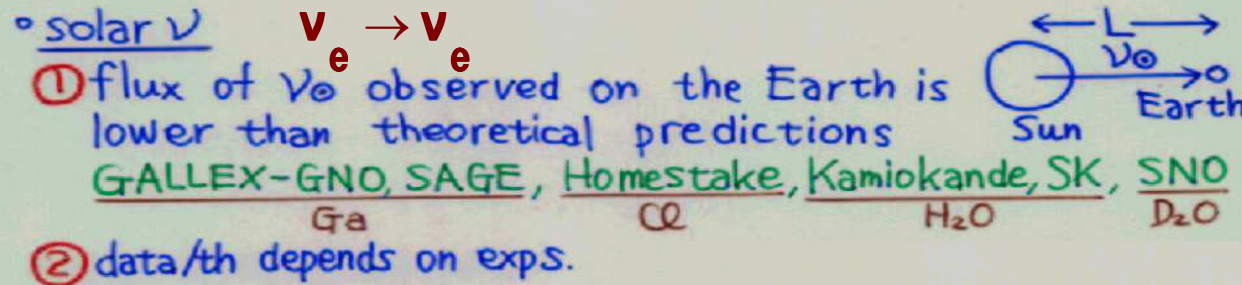 • solar ν νe → νe
① flux of ν⊙ observed on the Earth is
lower than theoretical predictions
GALLEX-GNO, SAGE, Homestake, Kamiokande, SK, SNO
Ga Cl H₂O D₂O
② data/th depends on exps.
L
ν⊙
Earth
Sun